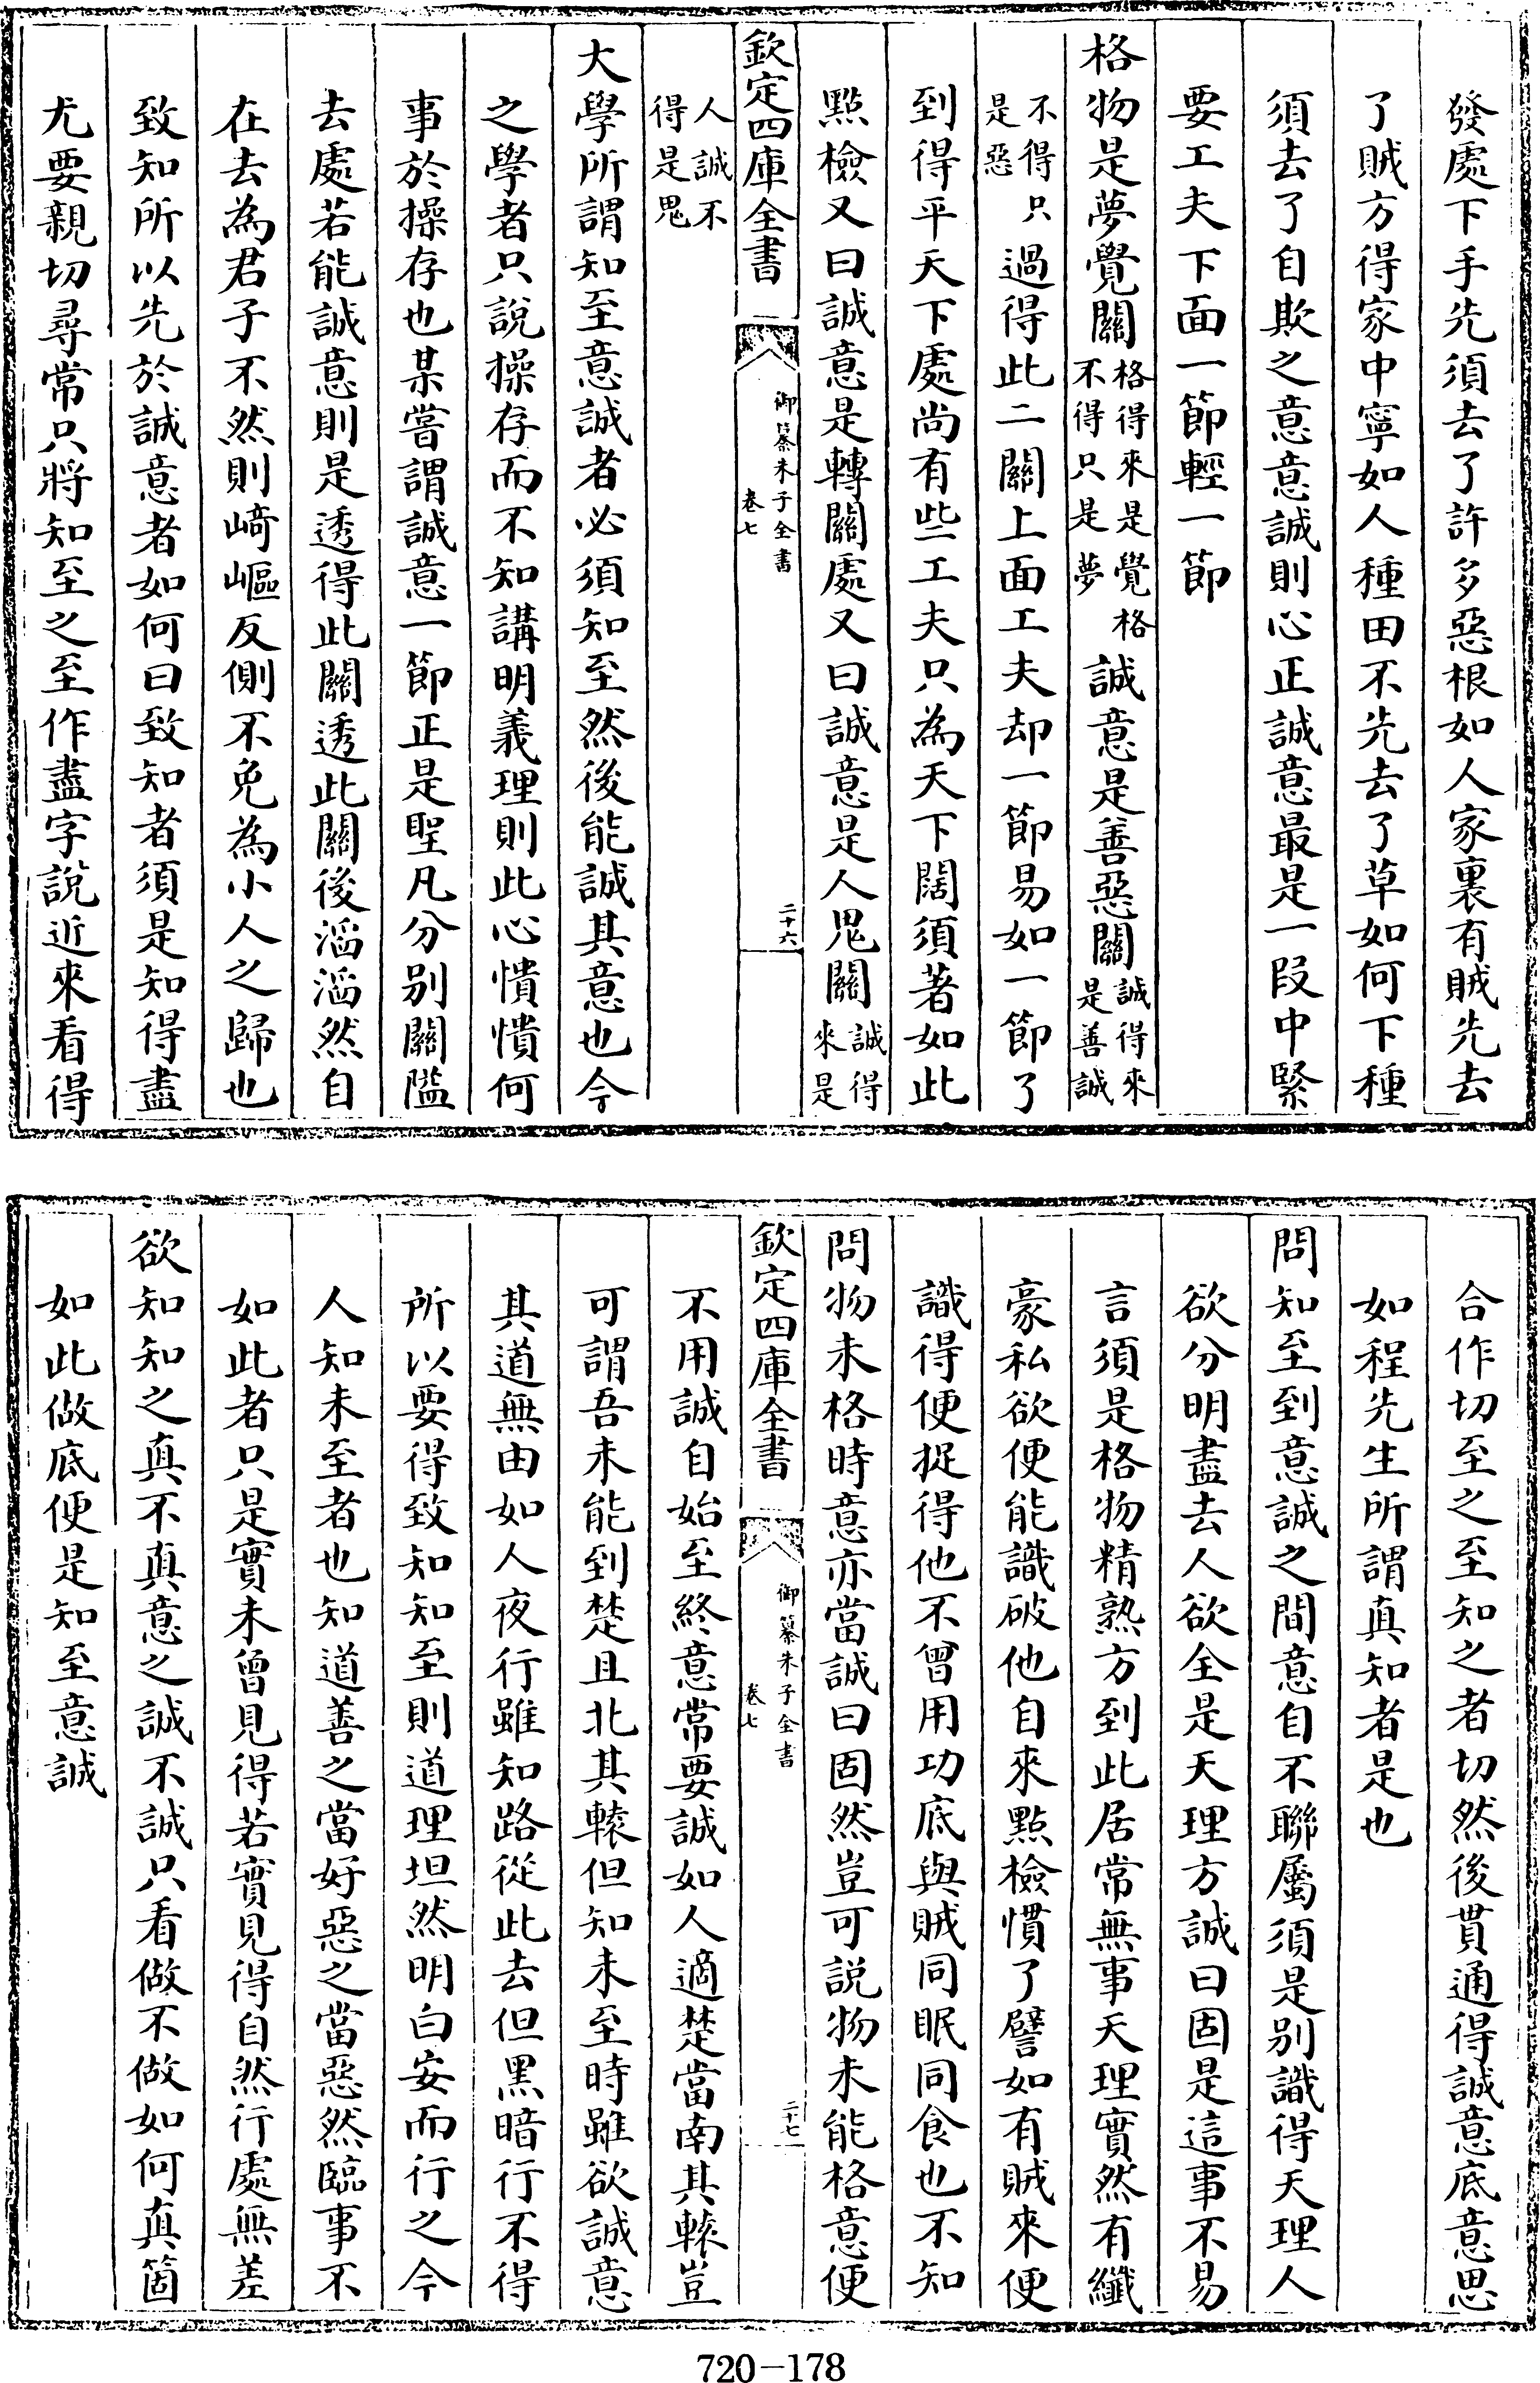 發處下手先須去了許多惡根如人家裏有賊先去
了賊方得家中寧如人種田不先去了草如何下種
須去了自欺之意意誠則心正誠意最是一段中緊
要工夫下面一節輕一節
格物是夢覺關格得來是覺格不得只是夢誠意是善惡關誠得來是善誠
不得只是惡過得此二關上面工夫却一節易如一節了
到得平天下處尚有些工夫只為天下闊須著如此
點檢又曰誠意是轉關處又曰誠意是人鬼關誠得來是
人誠不得是鬼
欽定四庫全書
御纂朱子全書
卷七
二十六
大學所謂知至意誠者必須知至然後能誠其意也今
之學者只說操存而不知講明義理則此心憒憒何
事於操存也某嘗謂誠意一節正是聖凡分別關隘
去處若能誠意則是透得此關透此關後滔滔然自
在去為君子不然則崎嶇反側不免為小人之歸也
致知所以先於誠意者如何曰致知者須是知得盡
尤要親切尋常只將知至之至作盡字說近來看得
合作切至之至知之者切然後貫通得誠意底意思
如程先生所謂真知者是也
問知至到意誠之間意自不聯屬須是別識得天理人
欲分明盡去人欲全是天理方誠曰固是這事不易
言須是格物精熟方到此居常無事天理實然有纖
豪私欲便能識破他自來點檢慣了譬如有賊來便
識得便捉得他不曾用功底與賊同眠同食也不知
問物未格時意亦當誠曰固然豈可說物未能格意便
欽定四庫全書
御纂朱子全書
卷七
二十七
不用誠自始至終意常要誠如人適楚當南其轅豈
可謂吾未能到楚且北其轅但知未至時雖欲誠意
其道無由如人夜行雖知路從此去但黑暗行不得
所以要得致知知至則道理坦然明白安而行之今
人知未至者也知道善之當好惡之當惡然臨事不
如此者只是實未曾見得若實見得自然行處無差
欲知知之真不真意之誠不誠只看做不做如何真箇
如此做底便是知至意誠
720-178